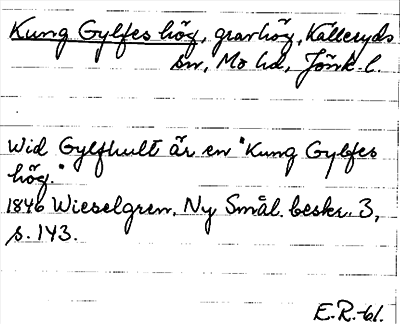 Kung Gylfes hög, gravhög, Kålleryds
sn, Mo hd, Jönk. l.
Wid Gylfhult är en "Kung Gylfes
hög."
1846 Wieselgren, Ny Smål. beskr. 3,
s. 143.
E.R.-61.